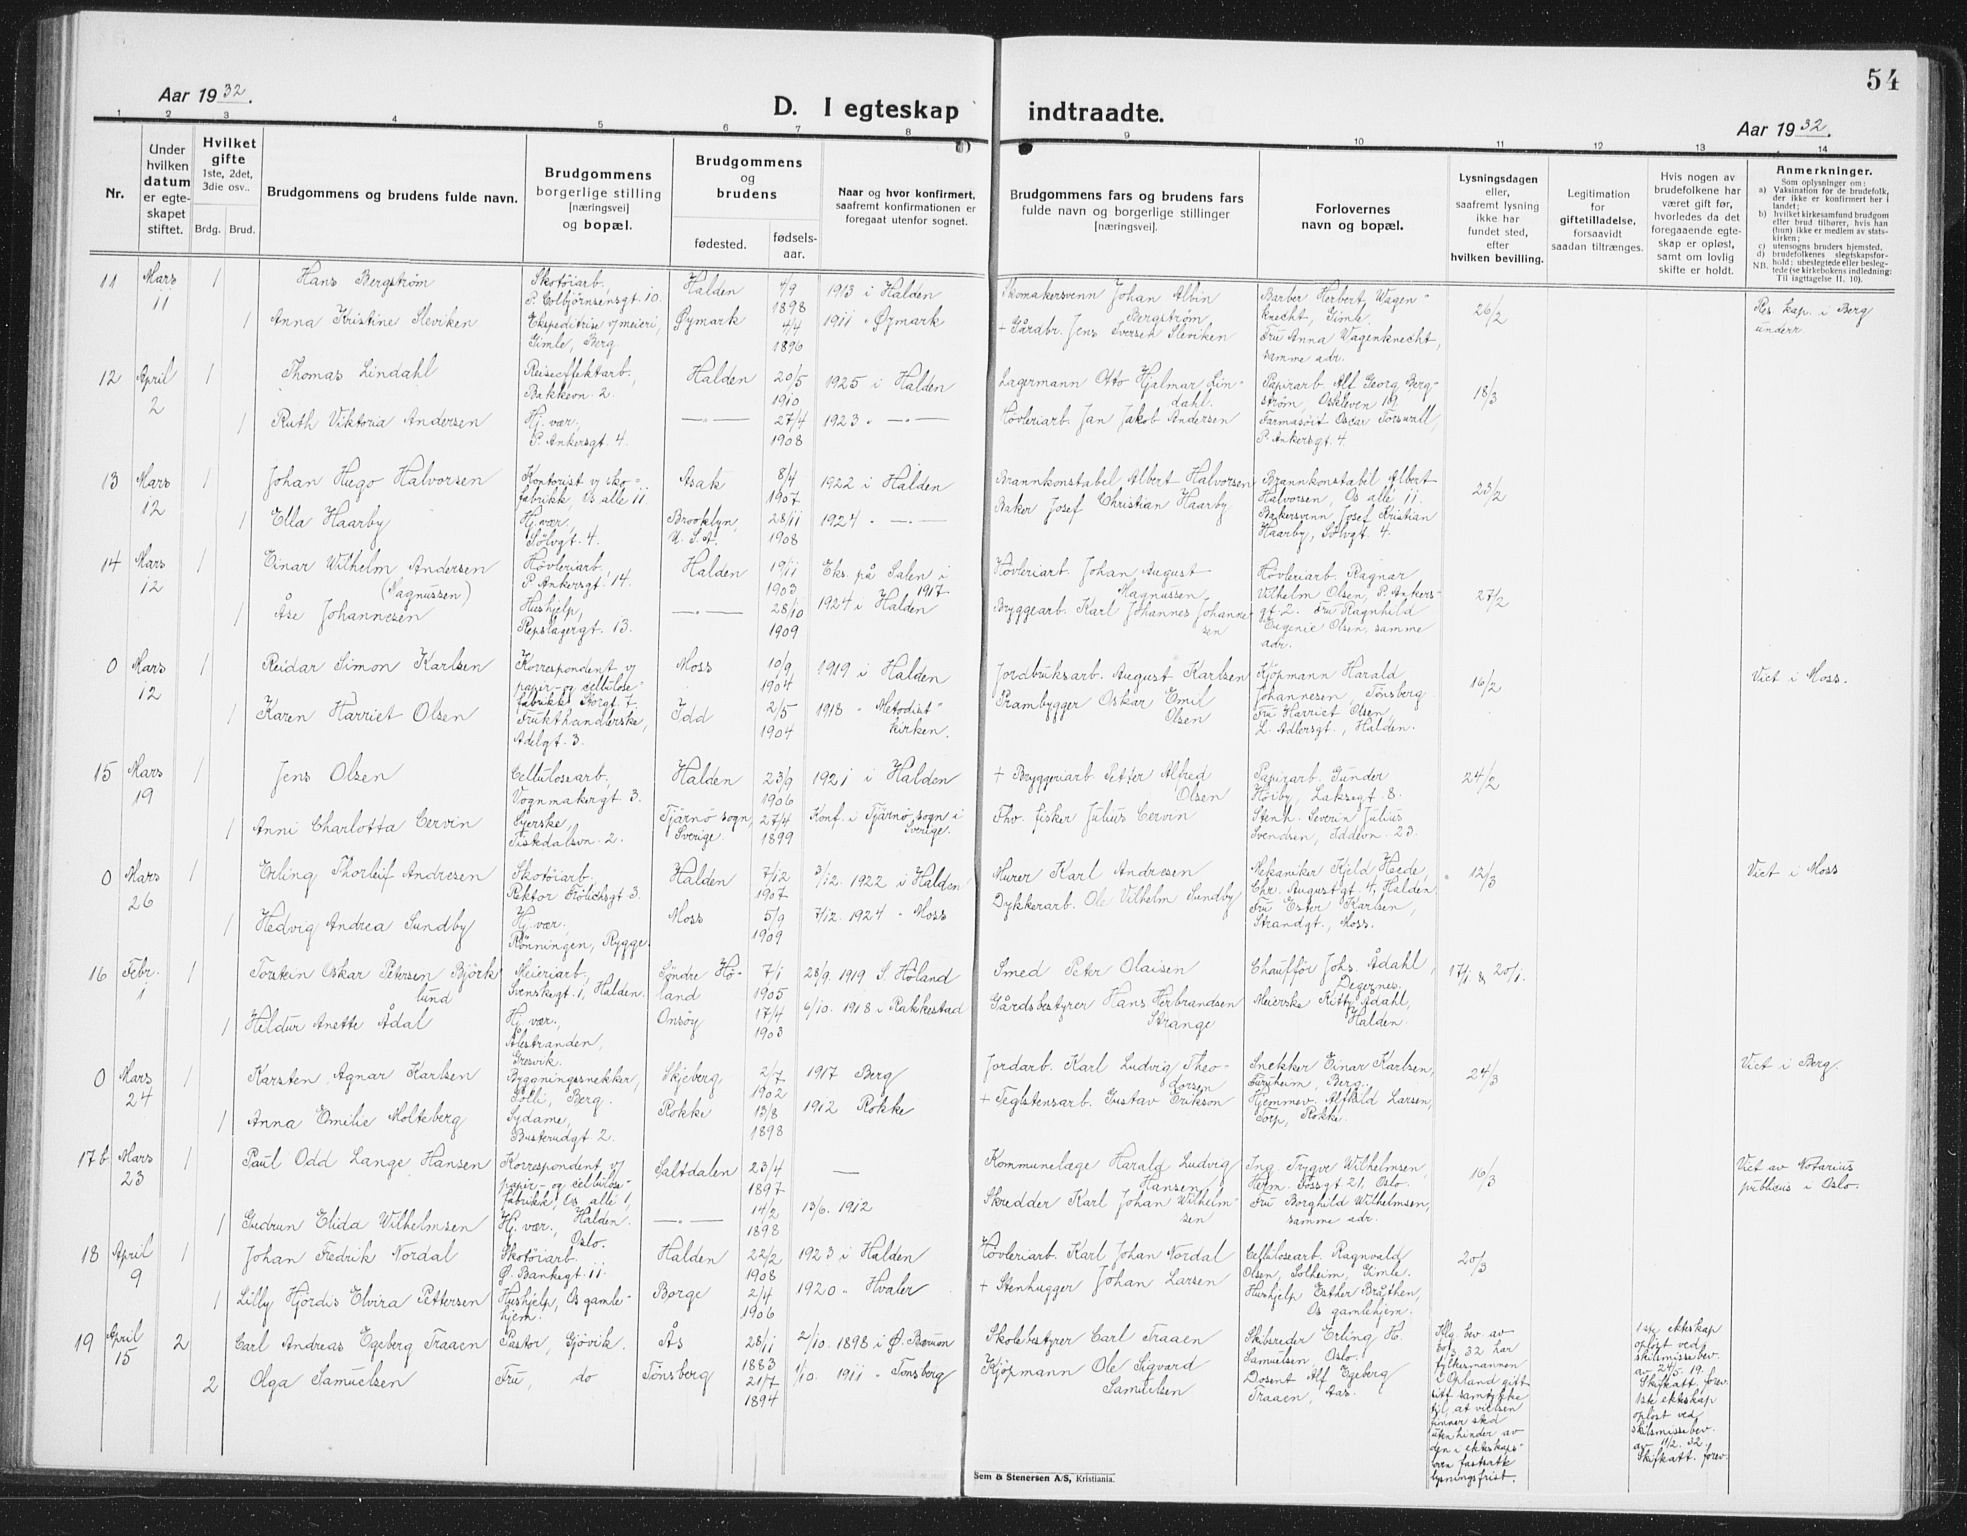 54
Aar 1932.
D. I egteskap indtraadte.
Aar 1932.
1 2 3 4 5 6 7 8 9 10 11 12 13 14
Nr.
Under hvilken datum er egteskapet stiftet.
Hvilket gifte
1ste, 2det, 3die osv..
Brdg. Brud.
Brudgommens og brudens fulde navn.
Brudgommens borgerlige stilling [næringsvei] og bopæl.
Brudgommens og brudens
fødested. fødsels-aar.
Naar og hvor konfirmert, saafremt konfirmationen er foregaat utenfor sognet.
Brudgommens fars og brudens fars fulde navn og borgerlige stillinger [næringsvei].
Forlovernes navn og bopæl.
Lysningsdagen eller, saafremt lysning ikke har fundet sted, efter hvilken bevilling.
Legitimation for giftetilladelse, forsaavidt saadan tiltrænges.
Hvis nogen av brudefolkene har været gift før, hvorledes da det foregaaende egteskap er opløst, samt om lovlig skifte er holdt.
Anmerkninger.
Som oplysninger om:
a) Vaksination for de brudefolk, der ikke er konfirmert her i landet;
b) hvilket kirkesamfund brudgom eller brud tilhører, hvis han (hun) ikke er medlem av statskirken;
c) utensogns bruders hjemsted.
d) brudefolkenes slegtskapsforhold; ubeslegtede eller beslegtede (se kirkebokens indledning:
NB. Til iagttagelse II. 10).
11 Mars 11 1 Hans Bergström Skotöiarb. P. Colbjörnsensgt. 10. Halden 4/9 1898 1913 i Halden Skomakersvenn Johan Albin Bergström Barber Herbert Wagenknecht, Gimle. 26/2 Res. kap. i Berg underr.
1 Anna Kristine Sleviken Ekspeditrise v/ meieri, Gimle, Berg. Øymark 4/4 1896 1911 " Øymark + Gårdbr. Jens Iversen Sleviken Fru Anna Wagenknecht, samme adr.
12 April 2 1 Thomas Lindahl Reiseeffektarb., Bakkeon. 2. Halden 20/5 1910 1925 i Halden Lagermann Otto Hjalmar Lindahl. Papirarb. Alf Georg Bergström, Oskleven 19. 18/3
1 Ruth Viktoria Andersen Hj. vær., P. Ankersgt. 4. —"— 27/4 1908 1923 " —"— Hövleriarb. Jan Jakob Andersen Farmasöit Oscar Torsvall, P. Ankersgt. 4
13 Mars 12 1 Johan Hugo Halvorsen Kontorist v/ skofabrikk, Os alle 11. Asak 8/4 1907 1922 i Halden Brannkonstabel Albert Halvorsen Brannkonstabel Albert Halvorsen, Os alle 11. 23/2
1 Ella Haarby Hj. vær., Sölvgt. 4. Brooklyn, U. S. A. 28/11 1908 1924 " —"— Baker Josef Christian Haarby Bakersvenn Josef Kristian Haarby, Sölvgt. 4.
14 Mars 12 1 Einar Wilhelm Andersen (Magnussen) Hövleriarb., P. Ankersgt. 14. Halden 19/11 1903 Eks. på Salen i 1917 Hövleriarb. Johan August Magnussen, Hövleriarb. Ragnar Vilhelm Olsen, P. Ankersgt. 2. 27/2
1 Åse Johannesen Hushjelp, Repslagergt. 13. —"— 28/10 1909 1924 i Halden Bryggearb. Karl Johannes Johannesen Fru Ragnhild Eugenie Olsen, samme adr.
0 Mars 12 1 Reidar Simon Karlsen Korrespondent v/ papir- og cellulosefabrikk Storgt. 7. Moss 10/9 1904 1919 i Halden Jordbruksarb. August Karlsen Kjöpmann Harald Johannesen, Tönsberg 16/2 Viet i Moss.
1 Karen Harriet Olsen Frukthandlerske, Adelgt. 3. Idd 2/5 1904 1918 " Metodistkirken. Prambygger Oskar Emil Olsen Fru Harriet Olsen, L. Adlersgt., Halden.
15 Mars 19 1 Jens Olsen Cellulosearb., Vognmakergt. 3. Halden 23/9 1906 1921 i Halden + Bryggeriarb. Petter Alfred Olsen Papirarb. Gunder Höiby, Laksegt. 8. 24/2
1 Anni Charlotta Cervin Syerske, Tistedalsvn. 2. Tjärnö sogn, Sverige. 27/4 1899 Konf. i Tjärnö sogn i Sverige. Fhv. fisker Julius Cervin Stenh. Severin Julius Svendsen, Iddevn. 23.
0 Mars 26 1 Erling Thorleif Andresen Skotöiarb. Rektor Frölichsgt 3. Halden 7/12 1907 3/12. 1922 i Halden Murer Karl Andresen Mekaniker Kjeld Heede, Chr. Augustgt. 4, Halden 12/3 Viet i Moss
1 Hedvig Andrea Sundby Hj. vær., Rönningen, Rygge. Moss 5/9 1909 7/12. 1924 " Moss Dykkerarb. Ole Vilhelm Sundby Fru Ester Karlsen, Strandgt., Moss.
16 Febr. 1 1 Torstein Oskar Petersen Björklund Meieriarb., Svenskegt. 1, Halden. Söndre Höland 7/1 1905 28/9. 1919 S. Höland Smed Peter Olaisen Chaufför Johs. Ådahl, Degernes. 17/1 & 20/1.
1 Hildur Anette Ådal Hj. vær., Ålestranden, Gresvik. Onsöy 17/4 1903 6/10. 1918 i Rakkestad Gårdsbestyrer Hans Herbrandsen Strange Meierske Kitty Ådahl, Halden.
0 Mars 24 1 Karsten Agnar Karlsen Bygningssnekker, Solli, Berg. Skjeberg 2/7 1902 1917 Berg Jordarb. Karl Ludvig Theodorsen Snekker Einar Karlsen, Furuheim, Berg. 24/3 Viet i Berg.
1 Anna Emilie Molteberg Sydame, Busterudgt 2. Rokke 13/8 1898 1912 Rokke + Teglstensarb. Gustav Erikson Hjemmev. Alfhild Larsen, Torp, Rokke.
17 b Mars 23 1 Paul Odd Lange Hansen Korrespondent v/ papir- og cellulosefabrikk, Os alle 1, Halden. Saltdalen 23/4 1897 — Kommunelæge Harald Ludvig Hansen, Ing. Trygve Wilhelmsen, Herm. Fossgt 21, Oslo. 16/3 Viet av Notarius publicus i Oslo.
1 Gudrun Elida Wilhelmsen Hj. vær., Oslo. —"— 14/2 1898 13/6. 1912 Skredder Karl Johan Wilhelmsen Fru Borghild Wilhelmsen, samme adr.
18 April 9 1 Johan Fredrik Nordal Skotöiarb. Ø. Bankegt. 11. Halden 22/2 1908 1923 i Halden Hövleriarb. Karl Johan Nordal Cellulosearb. Ragnvald Olsen, Solheim, Gimle. 20/3
1 Lilly Hjördis Elvira Pettersen Hushjelp, Os gamlehjem. Borge 2/4 1906 1920 " Hvaler + Stenhugger Johan Larsen Hushjelp Esther Bråthen, Os gamlehjem.
19 April 15 2 Carl Andreas Egeberg Traaen Pastor, Gjövik. Ås 28/11 1883 2/10. 1898 i Ø. Bærum Skolebestyrer Carl Traaen Skibsreder Erling H. Samuelsen, Oslo. Kgl. bev. av 32 har fylkesmannen i Opland gitt sitt samtykke til, at vielsen finner sted uten hinder av den i ekteskapsloven fastsatte lysningsfrist. 1ste ekteskap oplöst ved skilsmissebev. av 24/5. 19. Skifkatt. forev.
2 Olga Samuelsen Fru, do Tönsberg 21/7 1894 1/10. 1911 " Tönsberg Kjöpmann Ole Sigvard Samuelsen Dosent Alf Egeberg Traaen, Aas. 1ste ekteskap oplöst ved skilsmissebev. av 11/2. 32. Skifkatt. forev.
Sem & Stenersen A/S, Kristiania.